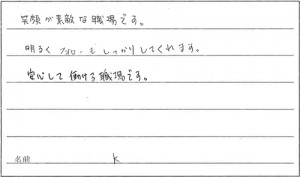 笑顔が素敵な職場です。
明るくフォローもしっかりしてくれます。
安心して働ける職場です。
名前 K